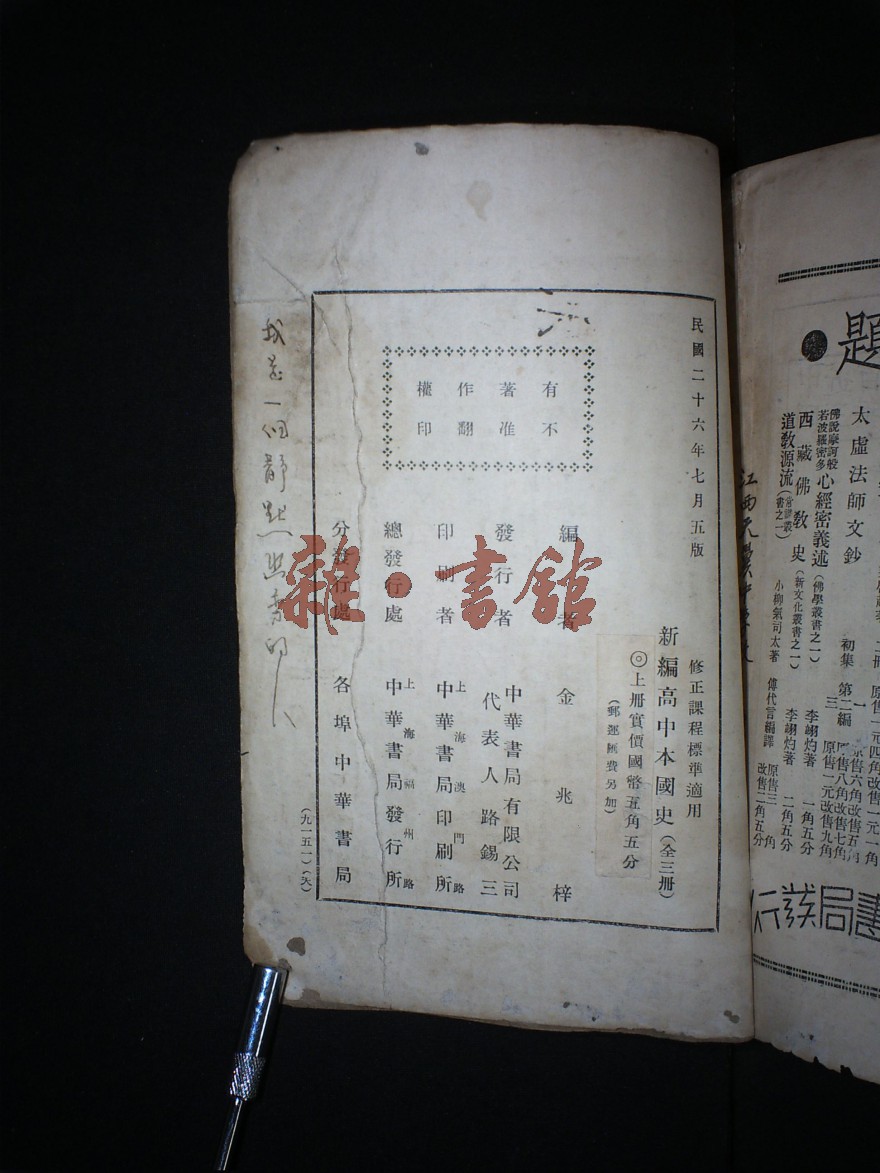 民國二十六年七月五版
修正課程標準適用
新編高中本國史（全三冊）
◎上冊實價國幣五角五分
（郵運匯費另加）
有不
著准
作翻
權印
編者 金兆梓
發行者 中華書局有限公司
代表人路錫三
印刷者 上海澳門路
中華書局印刷所
總發行處 上海福州路
中華書局發行所
分發行處 各埠中華書局
（九一五一）（天）
一個
雜·書館
題
太虛法師文鈔 初集
佛說摩訶般
若波羅密多
心經密義述（佛學叢書之一） 李翊灼著 一角五分
西藏佛教史（新文化叢書之一） 李翊灼著 二角五分
道教源流（常識叢書之一） 小柳氣司太著 傅代言編譯 原售三角
改售二角五分
第二編
原售八角改售七角
原售一元改售九角
原售一元四角改售一元一角
江西
書局發行